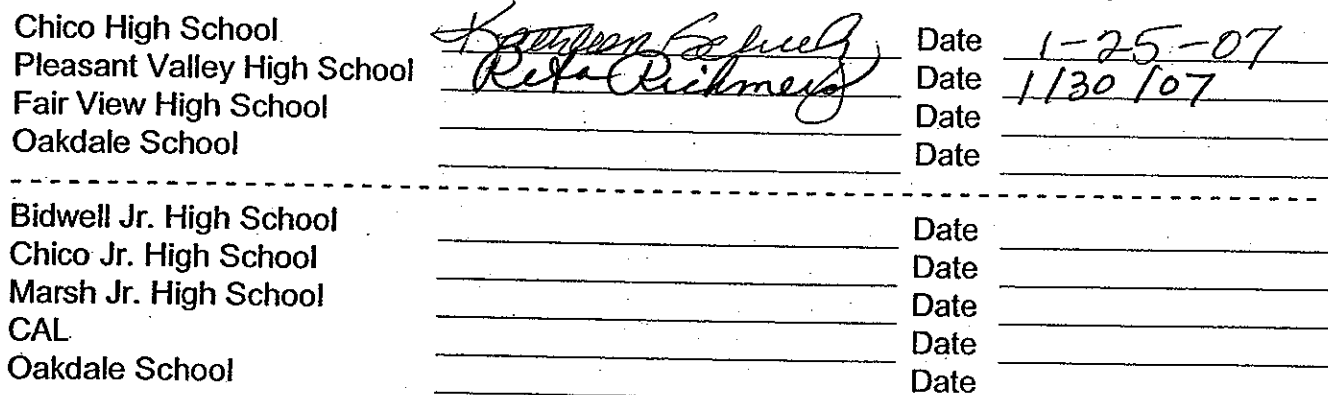 Chico High School Kathleen Date 1-25-07
Pleasant Valley High School Rita Richmeyer Date 1/30/07
Fair View High School Date
Oakdale School Date
Bidwell Jr. High School Date
Chico Jr. High School Date
Marsh Jr. High School Date
CAL Date
Oakdale School Date